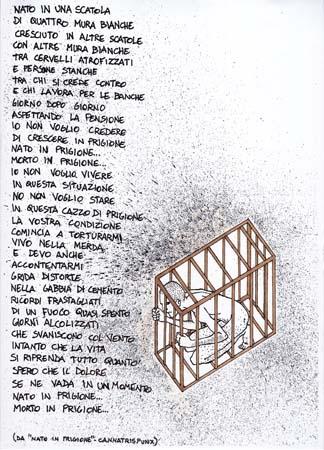 NATO IN UNA SCATOLA
DI QUATTRO MURA BIANCHE
CRESCIUTO IN ALTRE SCATOLE
CON ALTRE MURA BIANCHE
TRA CERVELLI ATROFIZZATI
E PERSONE STANCHE
TRA CHI SI CREDE CONTRO
E CHI LAVORA PER LE BANCHE
GIORNO DOPO GIORNO
ASPETTANDO LA PENSIONE
IO NON VOGLIO CREDERE
DI CRESCERE IN PRIGIONE
NATO IN PRIGIONE...
MORTO IN PRIGIONE...
IO NON VOGLIO VIVERE
IN QUESTA SITUAZIONE
NO NON VOGLIO STARE
IN QUESTA CAZZO DI PRIGIONE
LA VOSTRA CONDIZIONE
COMINCIA A TORTURARMI
VIVO NELLA MERDA
E DEVO ANCHE
ACCONTENTARMI
GRIDA DISTORTE
NELLA GABBIA DI CEMENTO
RICORDI FRASTAGLIATI
DI UN FUOCO QUASI SPENTO
GIORNI ALCOLIZZATI
CHE SVANISCONO COL VENTO
INTANTO CHE LA VITA
SI RIPRENDA TUTTO QUANTO
SPERO CHE IL DOLORE
SE NE VADA IN UN MOMENTO
NATO IN PRIGIONE...
MORTO IN PRIGIONE...
(DA "NATO IN PRIGIONE" - CANNATRISPUNX)